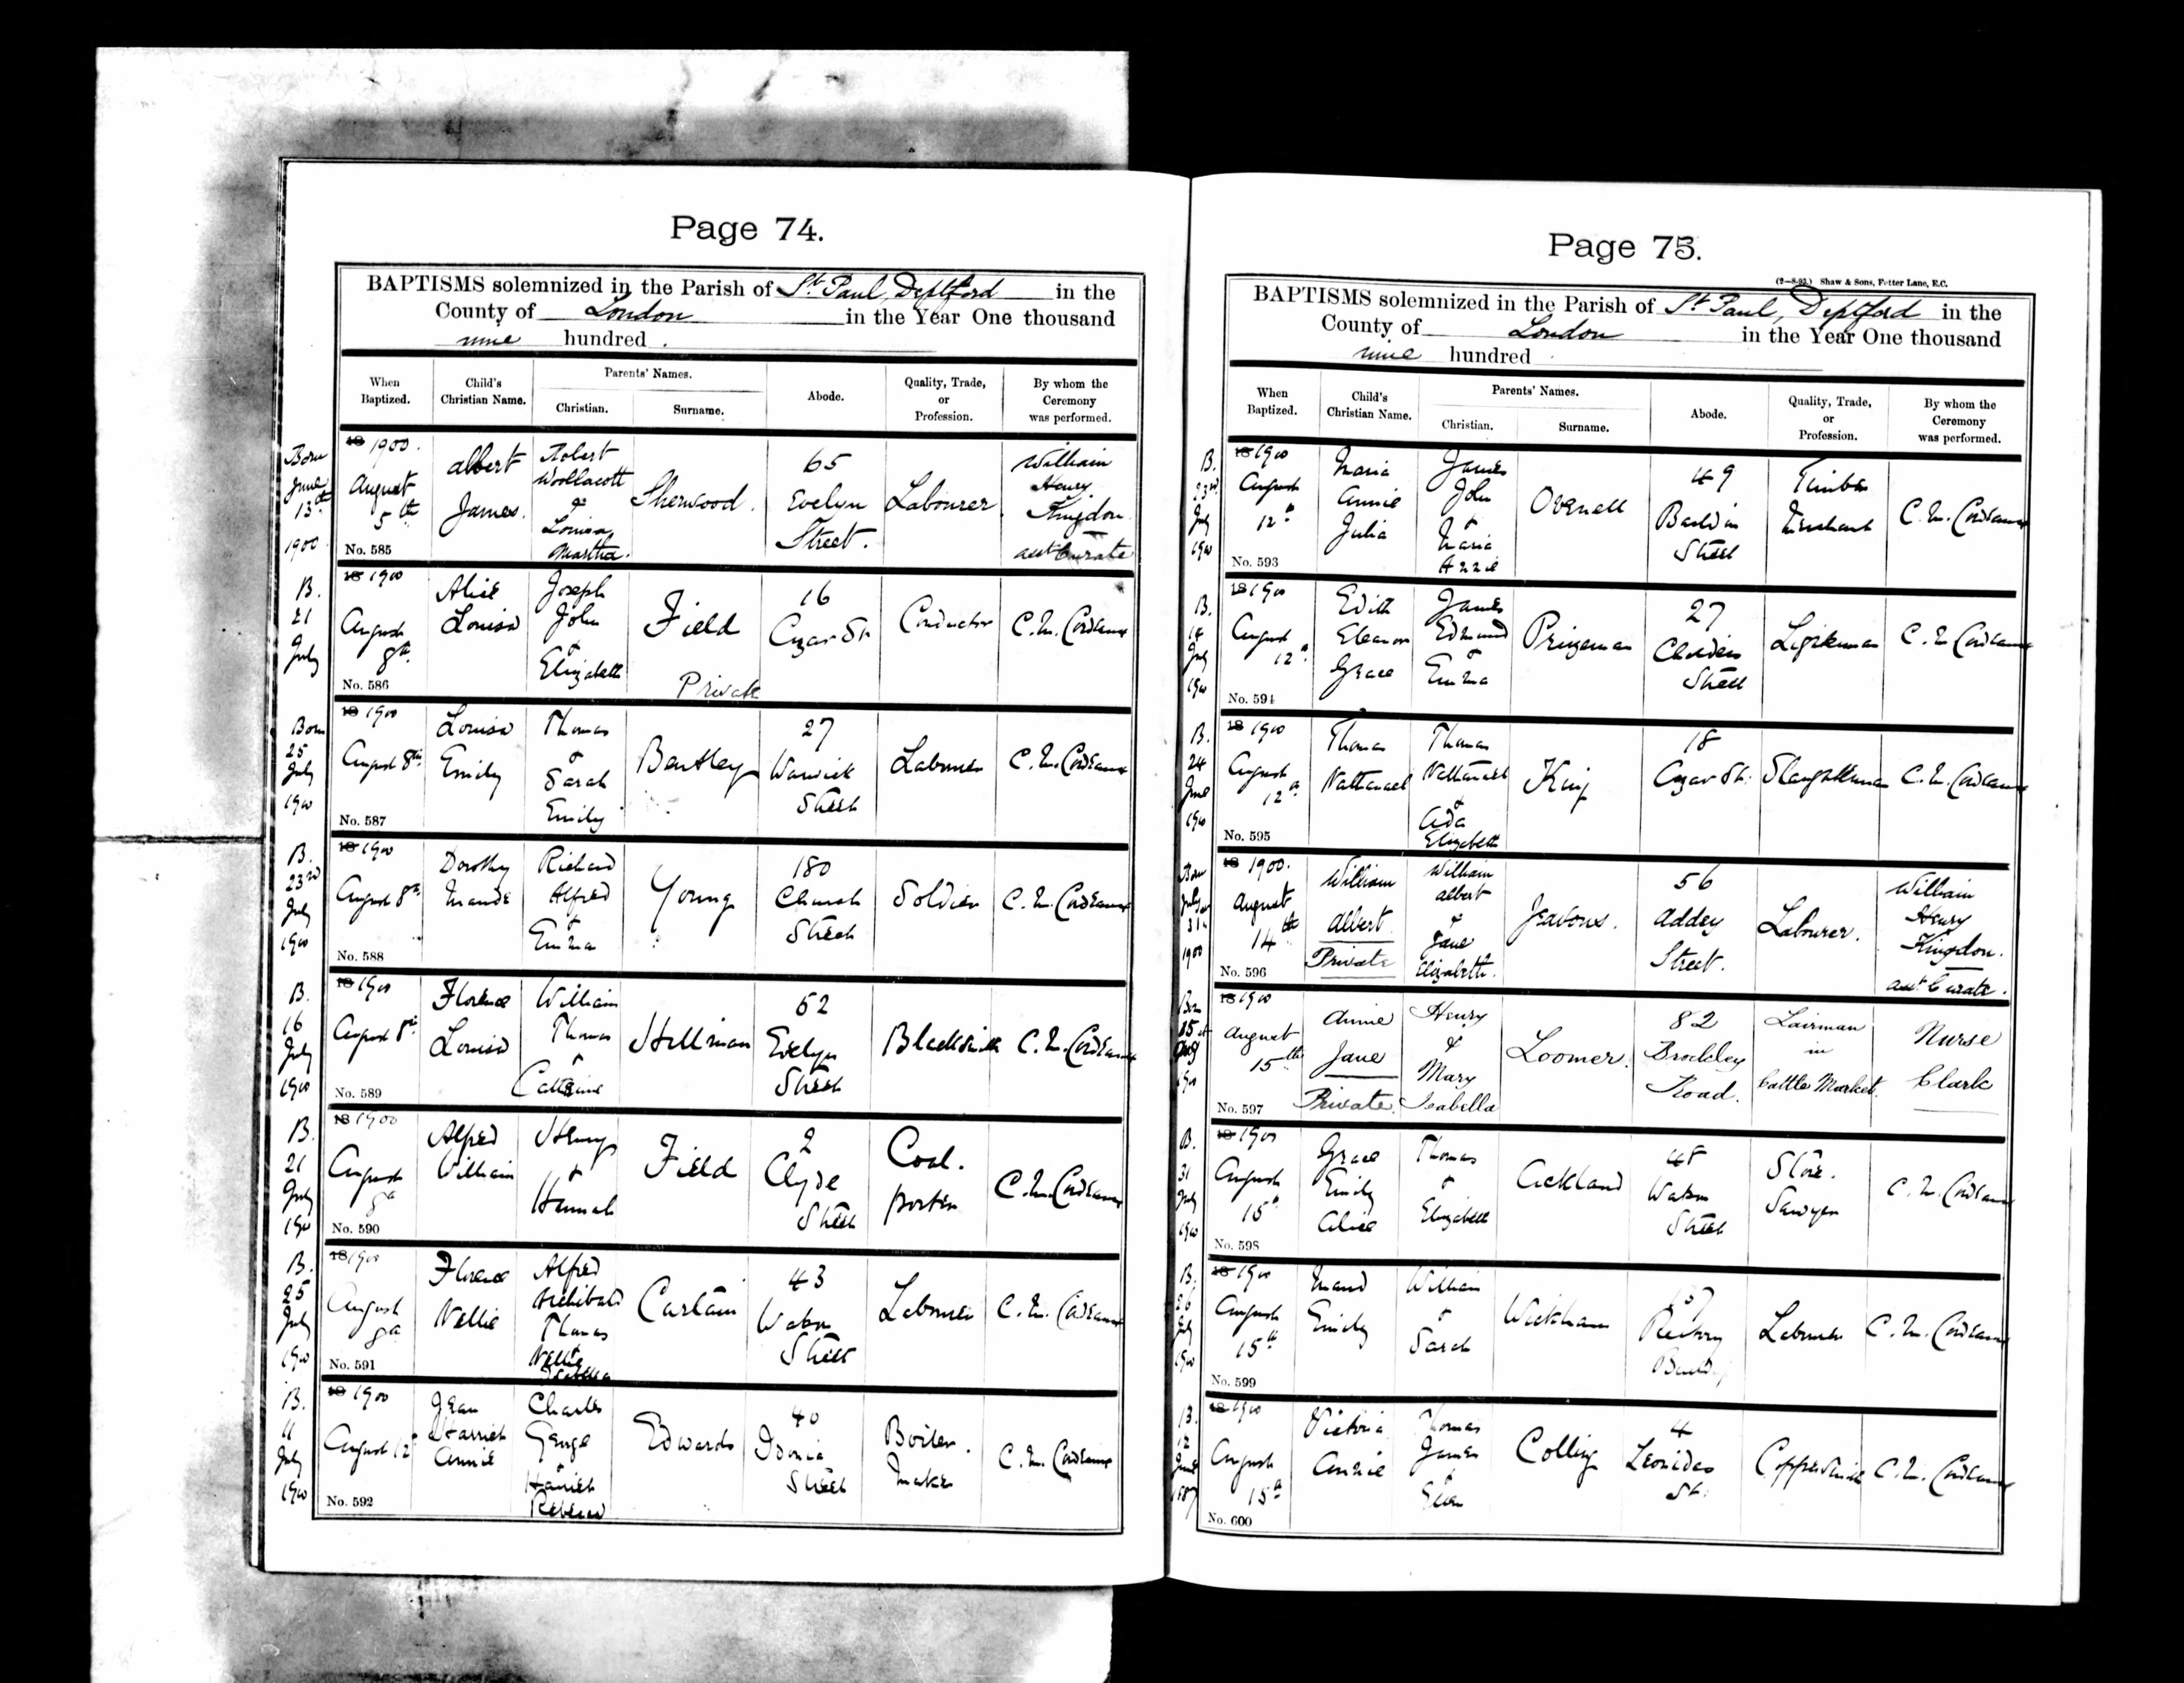 Page 74.
BAPTISMS solemnized in the Parish of St Paul, Deptford in the
County of London in the Year One thousand
nine hundred .
When Baptized.
Child's Christian Name.
Parents' Names.
Christian.
Surname.
Abode.
Quality, Trade, or Profession.
By whom the Ceremony was performed.
Born June 13th 1900
18 1900. August 5th
No. 585
Albert James.
Robert Woollacott & Louisa Martha.
Sherwood.
65 Evelyn Street.
Labourer.
William Henry Kingdon asst Curate
B. 21 July
18 1900 August 8th
No. 586
Alice Louisa
Joseph John + Elizabeth
Field
Private
16 Czar St.
Conductor
C. M.
Born 25 July 1900
18 1900 August 8th
No. 587
Louisa Emily
Thomas + Sarah Emily
Bentley
27 Warwick Street
Labourer
C. M.
B. 23rd July 1900
18 1900 August 8th
No. 588
Dorothy Maude
Richard Alfred + Emma
Young
180 Church Street
Soldier
C. M.
B. 16 July 1900
18 1900 August 8th
No. 589
Florence Louisa
William Thomas + Catherine
Hillman
52 Evelyn Street
Blacksmith
C. M.
B. 21 July 1900
18 1900 August 8th
No. 590
Alfred William
Henry + Hannah
Field
2 Clyde Street
Coal. porter
C. M.
B. 25 July 1900
18 1900 August 8th
No. 591
Florence Nellie
Alfred Archibald Thomas + Nellie
Curtain
43 Street
Labourer
C. M.
B. 11 July 1900
18 1900 August 12th
No. 592
Jean Harriet Annie
Charles George + Harriet Rebecca
Edwards
40 Idonia Street
Boiler. maker
C. M.
Page 75.
(2-8-93.) Shaw & Sons, Fetter Lane, E.C.
BAPTISMS solemnized in the Parish of St Paul, Deptford in the
County of London in the Year One thousand
nine hundred .
When Baptized.
Child's Christian Name.
Parents' Names.
Christian.
Surname.
Abode.
Quality, Trade, or Profession.
By whom the Ceremony was performed.
B. 23rd July 1900
18 1900 August 12th
No. 593
Maria Annie Julia
James John + Maria Annie
Ovenell
49 Street
Timber Merchant
C. M.
B. 14 July 1900
18 1900 August 12th
No. 594
Edith Eleanor Grace
James Edmund + Emma
Pringeman
27 Childers Street
Lighterman
C. M.
B. 24 June 1900
18 1900 August 12th
No. 595
Thomas Nathanael
Thomas Nathanael + Ada Elizabeth
King
18 Czar St.
Slaughterman
C. M.
Born July 31st 1900
18 1900. August 14th
No. 596
William Albert
Private
William Albert & Jane Elizabeth.
Jeavons.
56 Addey Street.
Labourer.
William Henry Kingdon. asst Curate.
18 1900 August 15th
No. 597
Annie Jane
Private.
Henry & Mary Isabella
Loomer.
82 Brockley Road.
Lairman in Cattle Market.
Nurse Clark
B. 31 July 1900
18 1900 August 15th
No. 598
Grace Emily Alice
Thomas + Elizabeth
Ackland
Street
Stone. Sawyer
C. M.
B. 26 July 1900
18 1900 August 15th
No. 599
Maud Emily
William + Sarah
Wickham
Rectory
Labourer
C. M.
B. 12 June 1887
18 1900 August 15th
No. 600
Victoria Annie
Thomas James +
Colling
4 Leonidas St.
Coppersmith
C. M.